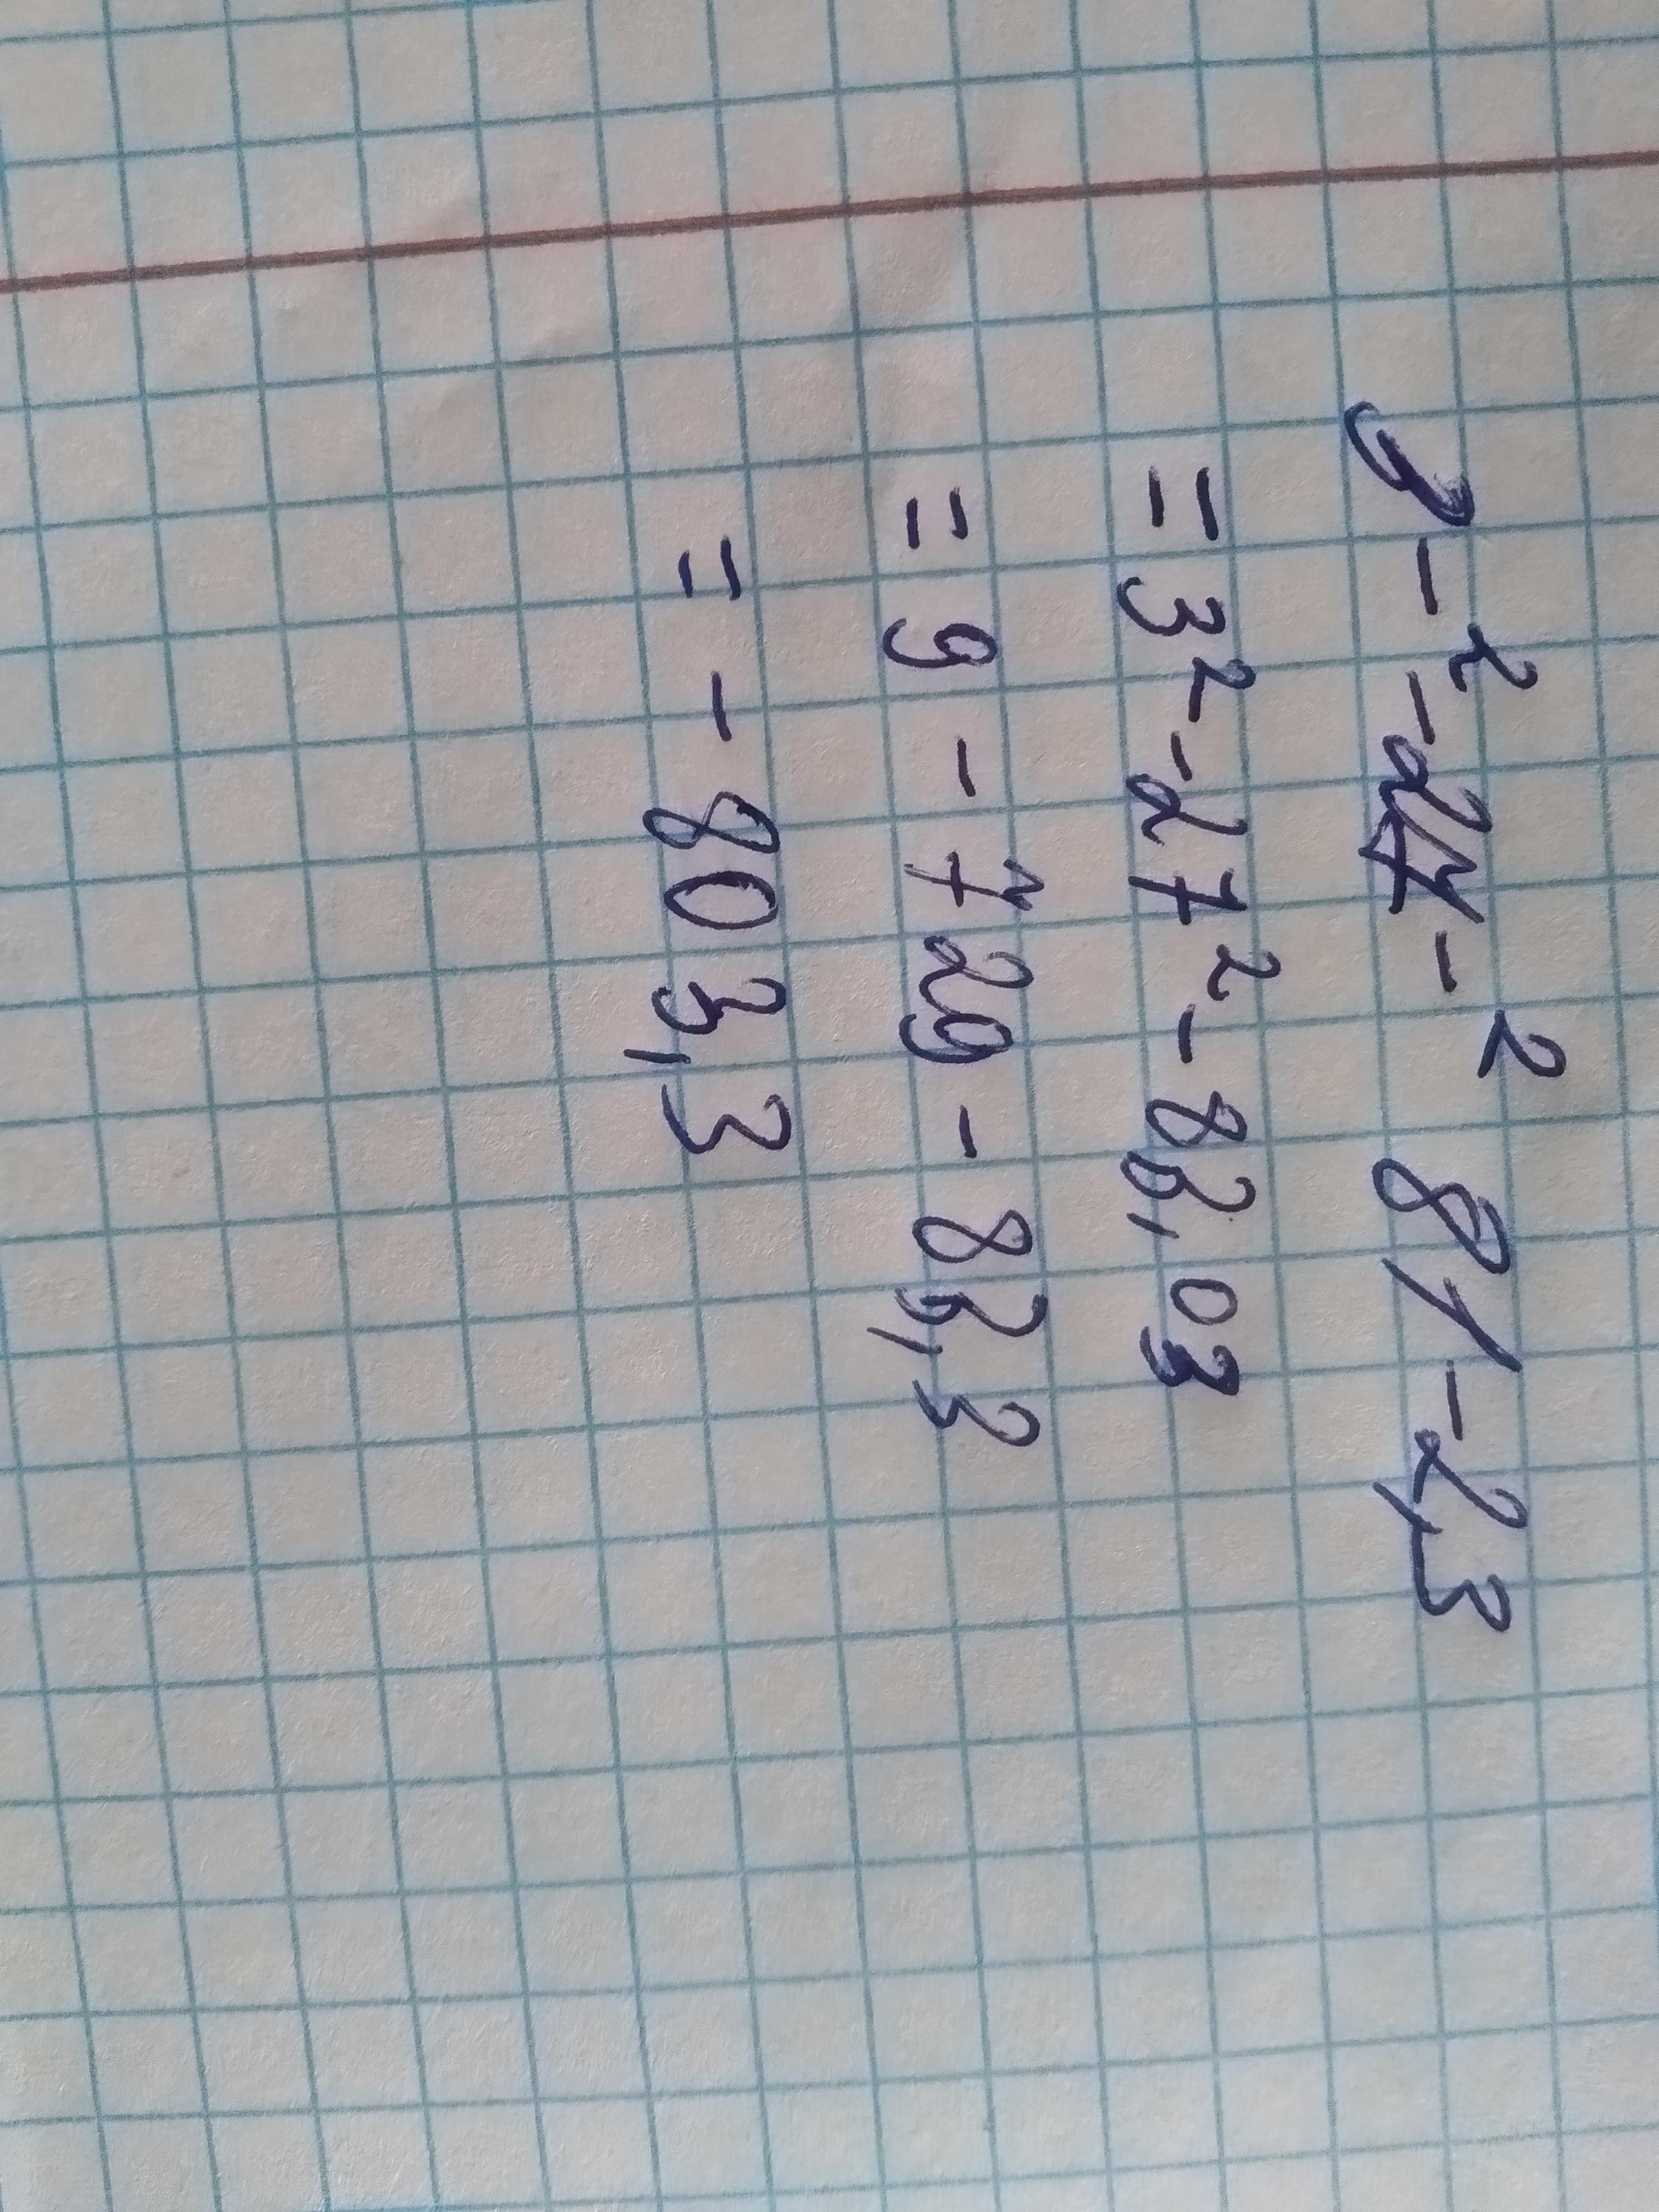 9 - ² - 27 - ² 81 - 2,3
= 3² - 27² - 83,03
= 9 - 729 - 83,3
= - 803,3